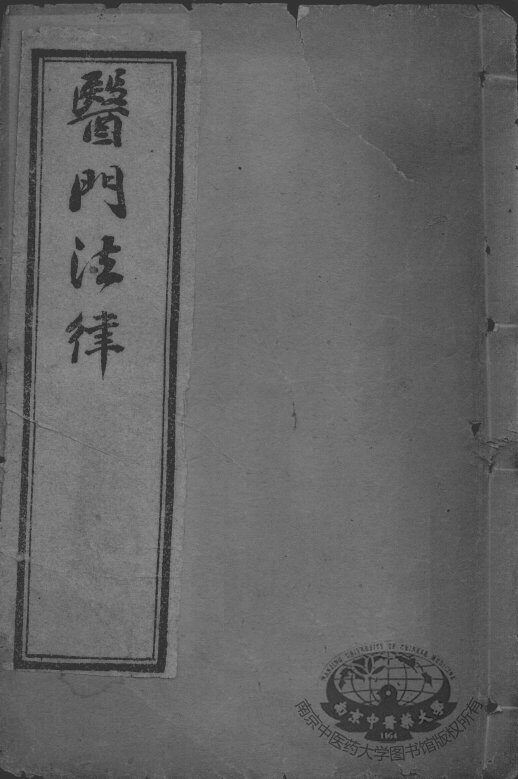 醫門法律
NANJING UNIVERSITY OF CHINESE MEDICINE
南京中醫藥大學
1954
南京中医药大学图书馆版权所有